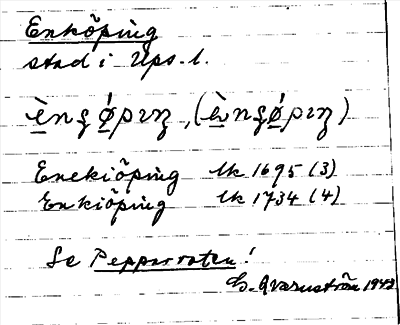 Enköping
stad i Ups. l.
Enekiöping lk 1695 (3)
Enkiöping lk 1734 (4)
Se Pepparroten!
E. Qvarnström 1942